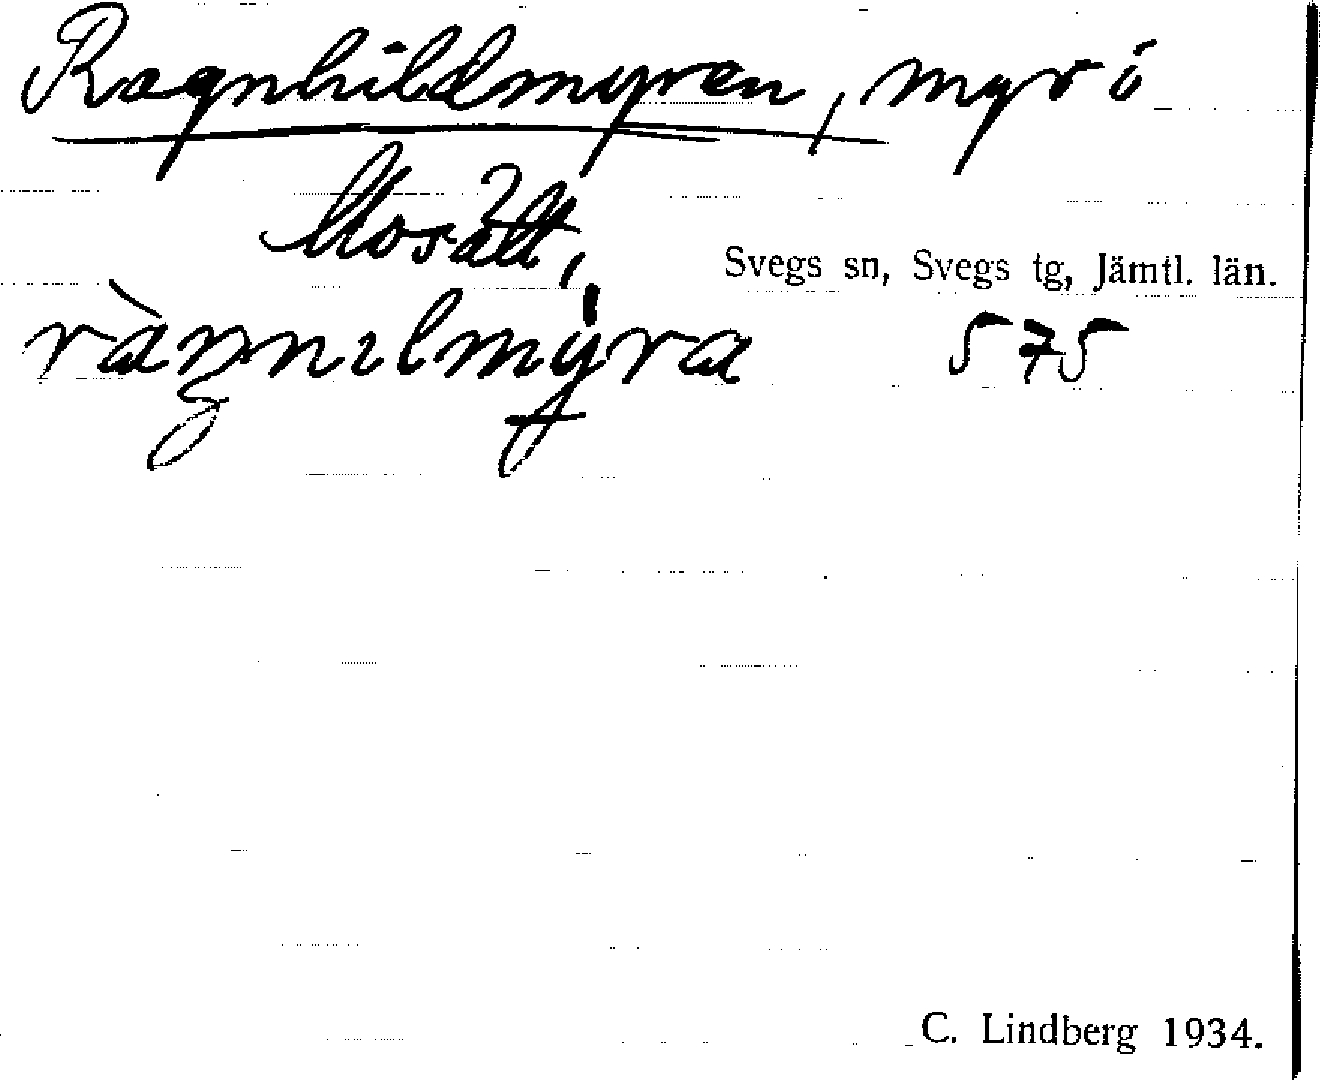 Ragnhildmyren, myr i
Mosätt,
Svegs sn, Svegs tg, Jämtl. län.
575
C. Lindberg 1934.